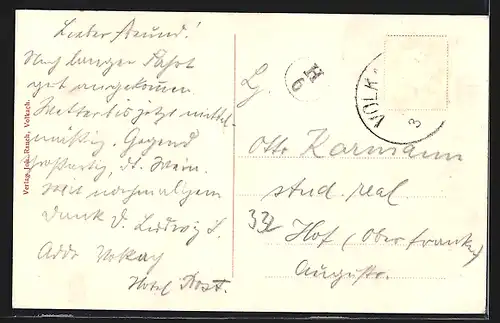 Lieber Freund!
Nach langer Fahrt
gut angekommen
Wetter bis jetzt mittel-
mäßig. Gegend
großartig, dt. Wein.
Mit nochmaligem
Dank D. Ludwig S.
Addr.
Hotel Post.
Verlag Joh. Rauch, Volkach.
H
6
VOLK
3
Lg.
Otto Karmann
stud. real.
32 Hof (Oberfranken)
Auguststr.